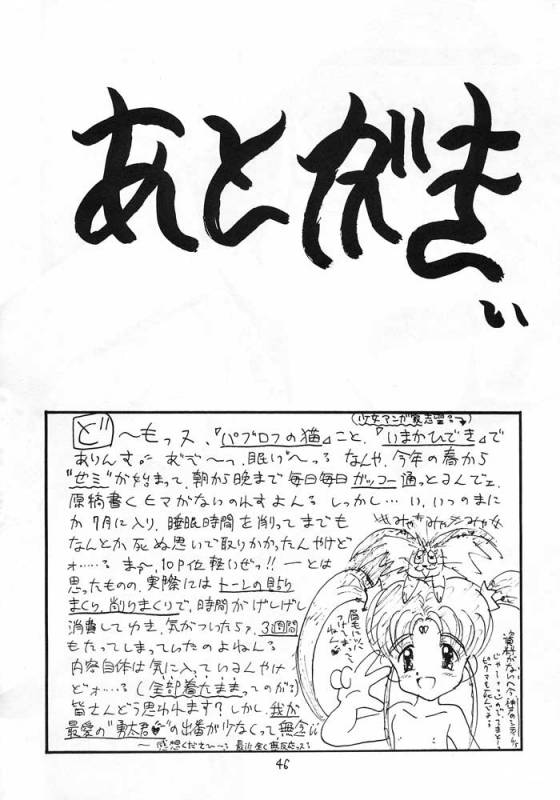 あとがきぃ
(少女マンガ家志望?→)
ど〜もっス、『パブロフの猫』こと、『いまかひでき』で
ありんす。 おで〜っ、眠い〜っる なんや、今年の春から
"ゼミ"が始まって、朝から晩まで毎日毎日ガッコー通っとるんでェ、
原稿書くヒマがないのれすよんる しっかし…い、いつのまに
か7月に入り、睡眠時間を削ってまでも
なんとか死ぬ思いで取りかかったんやけど
ォ……る ま〜、10P位軽いぜっ!! ーとは
思ったものの、実際にはトーンの貼り
まくり、削りまくりで、時間がげしげし
消費してゆき、気がついたらァ、3週間
もたってしまっていたのよねんる
内容自体は気に入っているんやけ
どォ…る (全部着たままってのがる)
皆さんどう思われます?しかし、我が
最愛の"勇太君"の出番が少なくって無念
〜感想くださ〜いる 最近全く無反応っスる
みゃみゃみゃみゃ
46